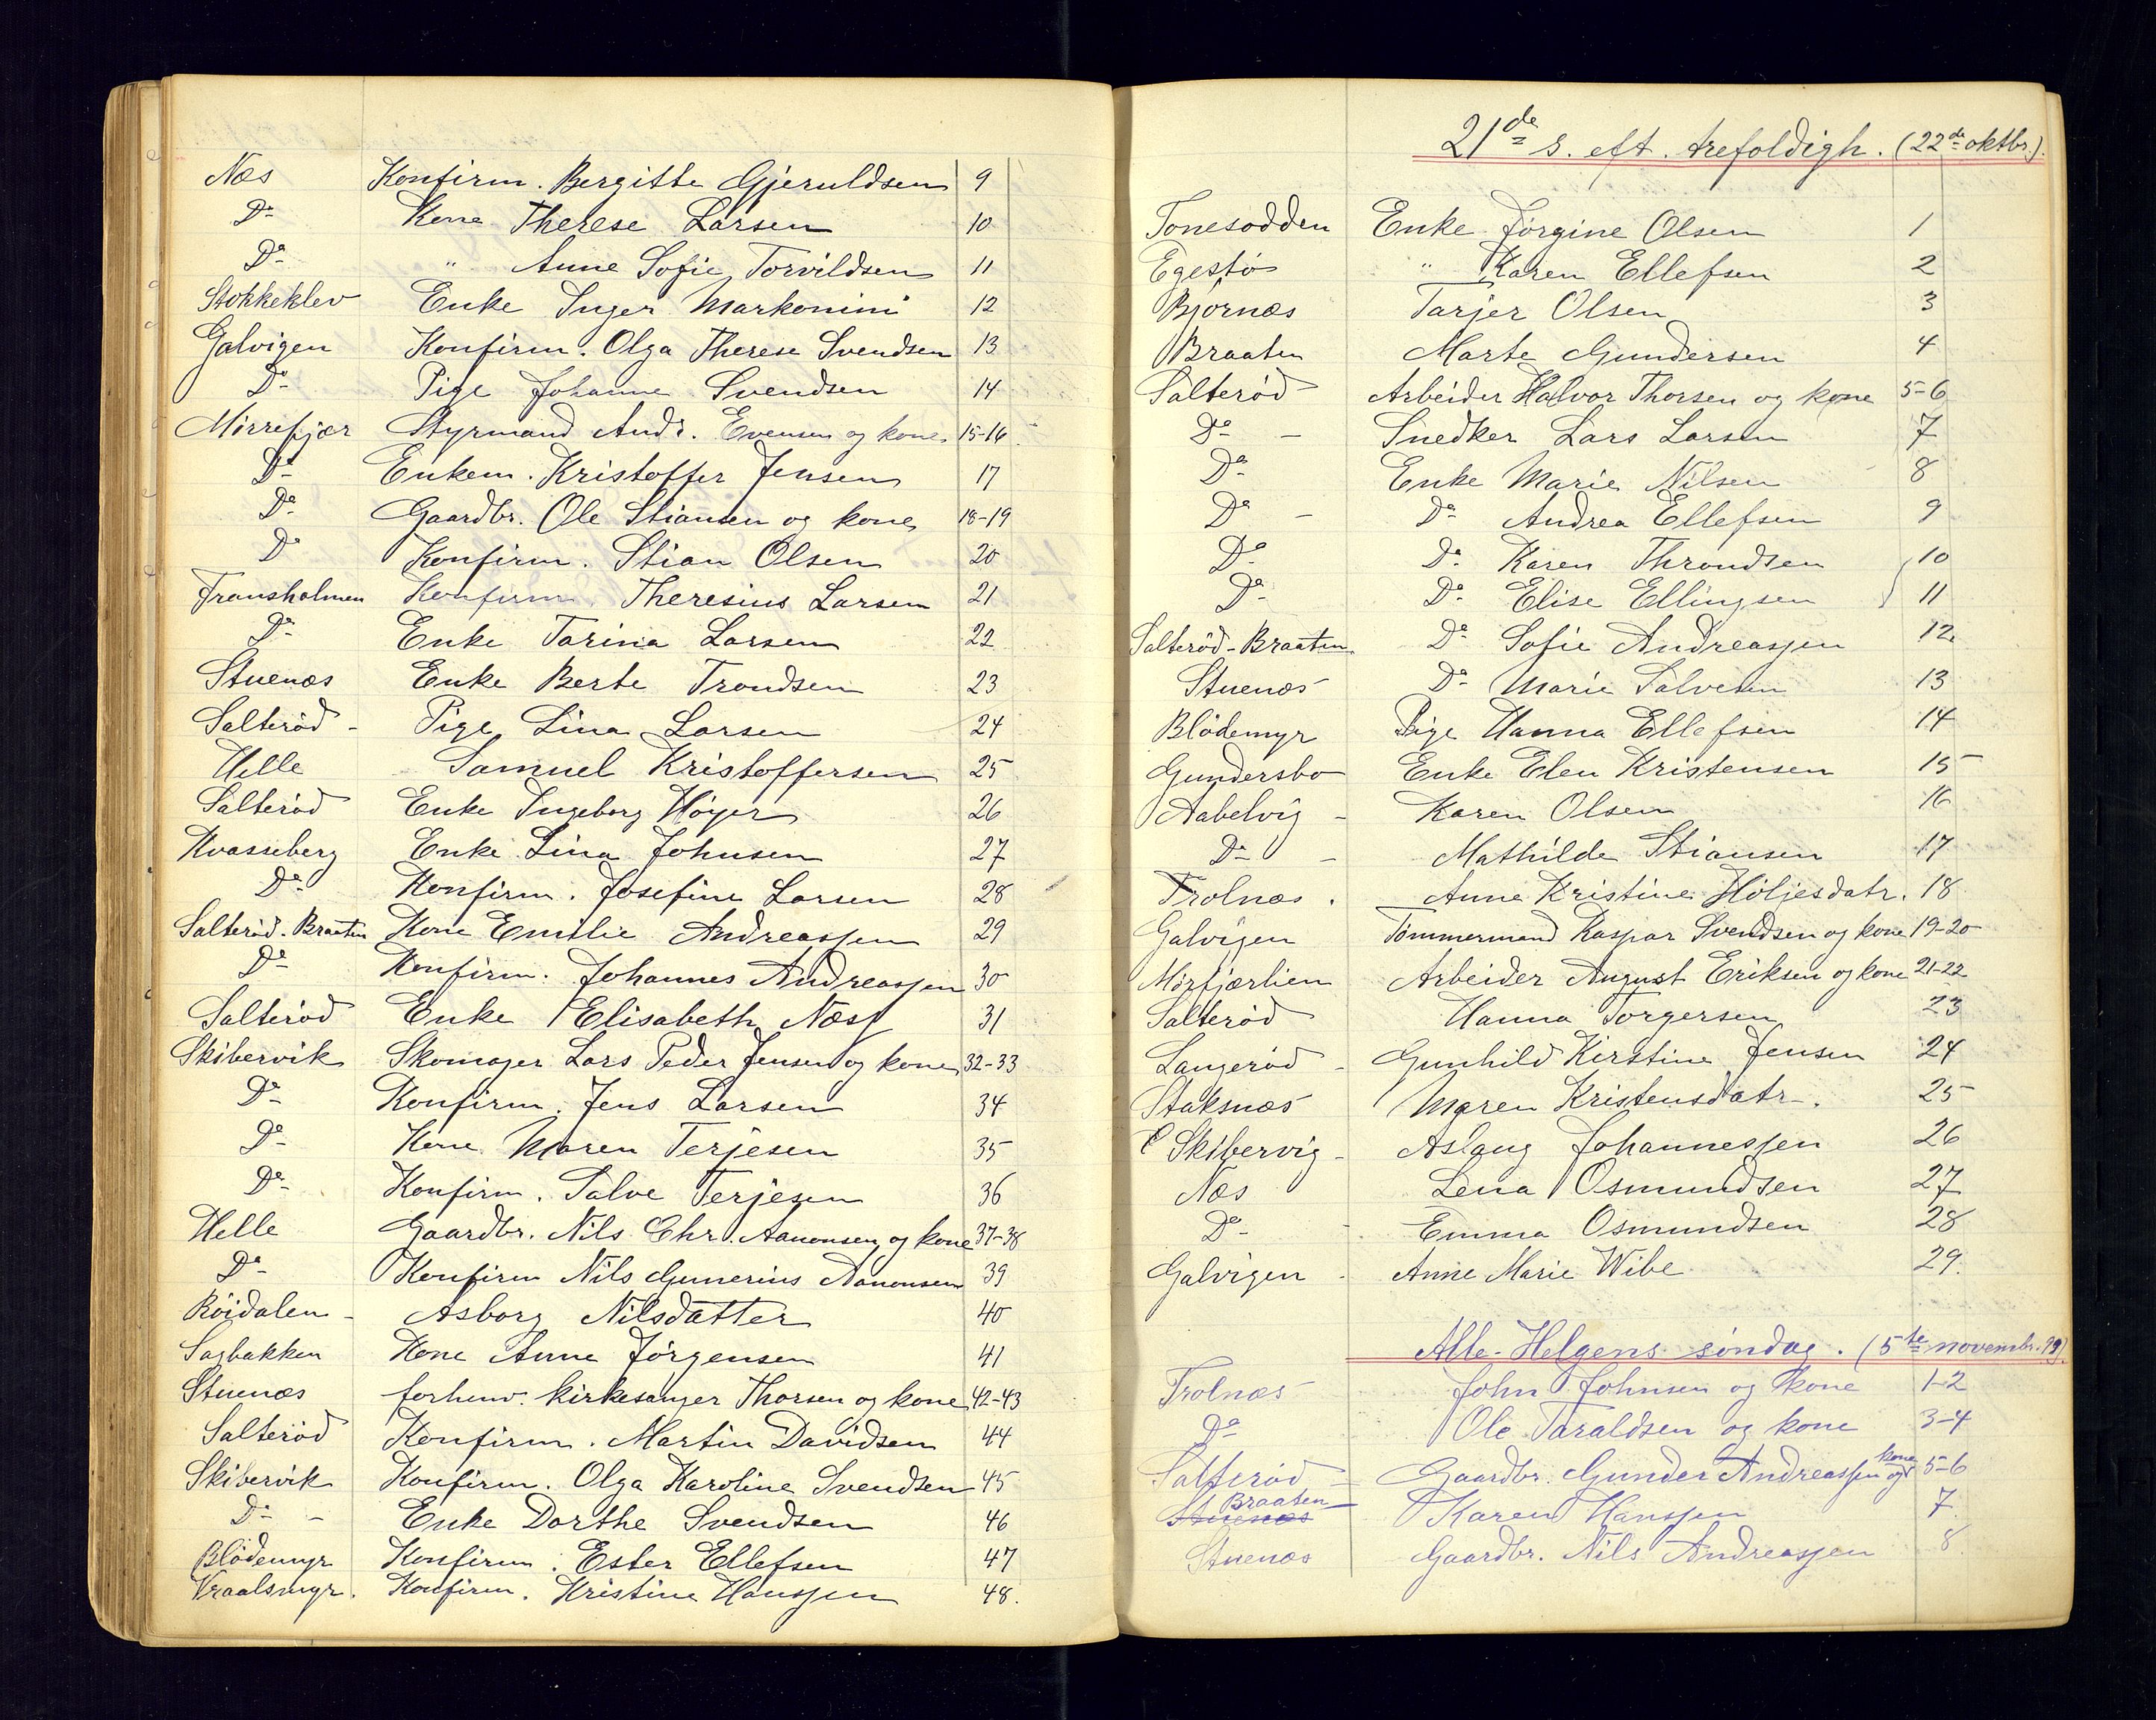 Næs Konfirm. Bergitte Gjeruldsen 9
Do Kone Therese Larsen 10
Do " Anne Sofie Torvildsen 11
Stokkeklev Enke Inger Markonini 12
Galvigen Konfirm. Olga Therese Svendsen 13
Do Pige Johanne Svendsen 14
Mörrefjær Styrmand Andr. Evensen og kone 15-16
Do Enkem. Kristoffer Jensen 17
Do Gaardbr. Ole Stiansen og kone 18-19
Do Konfirm. Stian Olsen 20
Fransholmen Konfirm. Theresius Larsen 21
Do Enke Tarina Larsen 22
Stuenæs Enke Berte Trondsen 23
Salteröd - Pige Lina Larsen 24
Helle Samuel Kristoffersen 25
Salteröd Enke Ingeborg Höyer 26
Kvasseberg Enke Lina Johnsen 27
Do Konfirm. Josefine Larsen 28
Salteröd-Braaten Kone Emilie Andreassen 29
Do Konfirm. Johannes Andreassen 30
Salteröd Enke Elisabeth Næss 31
Skibervik Skomager Lars Peder Jensen og kone 32-33
Do Konfirm. Jens Larsen 34
Do Kone Maren Terjesen 35
Do Konfirm. Salve Terjesen 36
Helle Gaardbr. Nils Chr. Aanonsen og kone 37-38
Do Konfirm Nils Gunerius Aanonsen 39
Röidalen - Asborg Nilsdatter 40
Sagbakken Kone Anne Jörgensen 41
Stuenæs forhenv. kirkesanger Thorsen og kone 42-43
Salteröd Konfirm. Martin Davidsen 44
Skibervik Konfirm. Olga Karoline Svendsen 45
Do - Enke Dorthe Svendsen 46
Blödemyr Konfirm. Ester Ellefsen 47
Vraalsmyr. Konfirm. Kristine Hanssen 48.
21de s. eft. trefoldigh. (22de oktbr.).
Tonesodden Enke Jörgine Olsen 1
Egestö " Karen Ellefsen 2
Björnæs Tarjer Olsen 3
Braaten Marte Gundersen 4
Salteröd Arbeider Halvor Thorsen og kone 5-6
Do - Snedker Lars Larsen 7
Do Enke Marie Nilsen 8
Do - Do Andrea Ellefsen 9
Do Do Karen Throndsen 10
Do Do Elise Ellingsen 11
Salteröd-Braaten Do Sofie Andreassen 12
Stuenæs Do Marie Salvesen 13
Blödemyr Pige Hanna Ellefsen 14
Gundersbo Enke Elen Kristensen 15
Aabelvig - Karen Olsen 16
Do - Mathilde Stiansen 17
Trolnæs. Anne Kristine Höljesdatr. 18
Galvigen Tömmermand Kaspar Svendsen og kone 19-20
Mörfjærlien Arbeider August Eriksen og kone 21-22
Salteröd Hanna Torgersen 23
Langeröd - Gunhild Kirstine Jensen 24
Staksnæs Maren Kristensdatr. 25
Skibervig - Aslaug Johannessen 26
Næs Lena Osmundsen 27
Do - Emma Osmundsen 28
Galvigen - Anne Marie Wibe 29.
Alle-Helgens söndag. (5te novembr. 19).
Trolnæs John Johnsen og kone 1-2
Do Ole Taraldsen og kone 3-4
Salteröd - Gaardbr. Gunder Andreassen og kone 5-6
Stuenæs Braaten Karen Hanssen 7
Stuenæs Gaardbr. Nils Andreassen 8